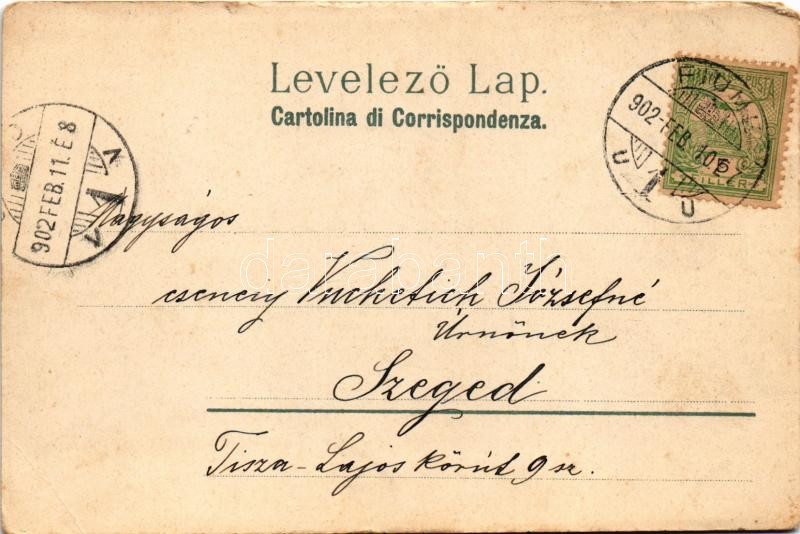 Levelező Lap.
Cartolina di Corrispondenza.
FIUME
902-FEB. 10
902 FEB. 11. É 8
FILLÉR
Nagyságos
cseneiy Vuchetich Józsefné
Úrnőnek
Szeged
Tisza-Lajos körút 9 sz.
darabanth